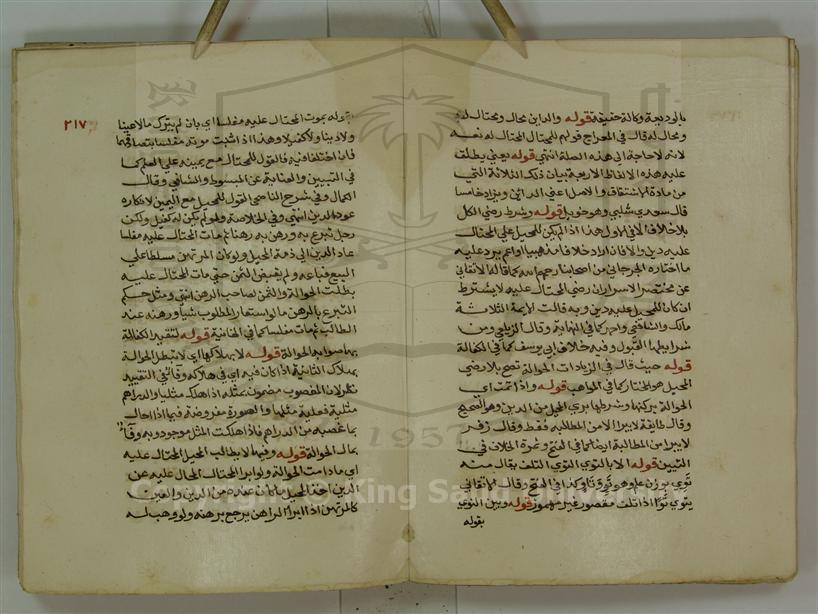 بالوديعة وكالة حقيقة قوله والداين محال ومحتال له
ومحال له قال في المعراج قولهم للمحتال المحتال له
لانه لا حاجة الى هذه الصلة انتهى قوله يعني يطلق
عليه هذه الالفاظ الاربعة بيان ذلك الثلاثة التي
من مادة الاشتقاق والاصل اعني الدائن ويزاد خامسا
قال سعدي شلبي وهو حويل قوله وشرط رضى الكل
بلا خلاف الا في الاول هذا اذا لم يكن للمحيل على المحتال
عليه دين والا فان اراد خلافا مذهبيا وانما يرد عليه
ما اختاره الجرجاني من اصحابنا رحمهم الله كما قاله الاتقاني
عن مختصر الاسرار ان رضى المحتال عليه لا يشترط
ان كان للمحيل عليه دين وبه قالت الايمة الثلاثة
مالك والشافعي واحمد كما في النهاية وقال الزيلعي ومن
شرايطها القبول وفيه خلاف ابي يوسف كما في الكفالة
قوله حيث قال في الزيادات الحوالة تصح بلا رضى
المحيل هو المختار كما في المواهب قوله واذا تمت اي
الحوالة بركنها وشرطها بري المحيل من الدين وهو الصحيح
وقال طايفة لا يبرا الا من المطالبة فقط وقال زفر
لا يبرا من المطالبة ايضا كما في الفتح وثمرة الخلاف في
التبيين قوله الا بالتوى التوى التلف يقال منه
توى بوزن علم وهو تو وتاو كذا في الفتح وقال الاتقاني
يتوي توا اذا تلف مقصور غير مهموز قوله وبين التوى
بقوله
٢١٧
بقوله بموت المحتال عليه مفلسا اي بان لم يترك مالا عينا
ولا دينا ولا كفيلا وهذا اذا ثبت موته مفلسا بتصادقهما
فان اختلفا فيه فالقول للمحتال مع يمينه على العلم كما
في التبيين والعناية عن المبسوط والشافي وقال
الكمال وفي شرح الناصحي القول للمحيل مع اليمين لانكاره
عود الدين انتهى وفي الخلاصة ولو لم يكن له كفيل ولكن
رجل تبرع به ورهن به رهنا ثم مات المحتال عليه مفلسا
عاد الدين الى ذمة المحيل ولو كان المرتهن مسلطا على
البيع فباعه ولم يقبض الثمن حتى مات المحتال عليه
بطلت الحوالة والثمن لصاحب الرهن انتهى ومثل حكم
التبرع بالرهن ما لو استعار المطلوب شيا ورهنه عند
الطالب ثم مات مفلسا كما في الخانية قوله لتقيد الكفالة
بها صوابه الحوالة قوله لا بهلاكها اي لا تبطل الحوالة
بهلاك الثانية اذا كان فيه اي في هلاكه وفاء في التقييد
نظر لان المغصوب مضمون بمثله اذا هلك مثليا والدراهم
مثلية فعليه مثلها والصورة مفروضة فيما اذا احال
بما غصبه من الدراهم فاذا هلكت المثل موجود وبه وفاء
بمال الحوالة قوله وفيها لا يطالب المحيل المحتال عليه
اي ما دامت الحوالة ولو ابرا المحتال المحال عليه عن
الدين اخذ المحيل ما كان عنده من الدين والعين
كالمرتهن اذا ابرا الراهن يرجع برهنه ولو وهب له
1957
Copyright © King Saud University